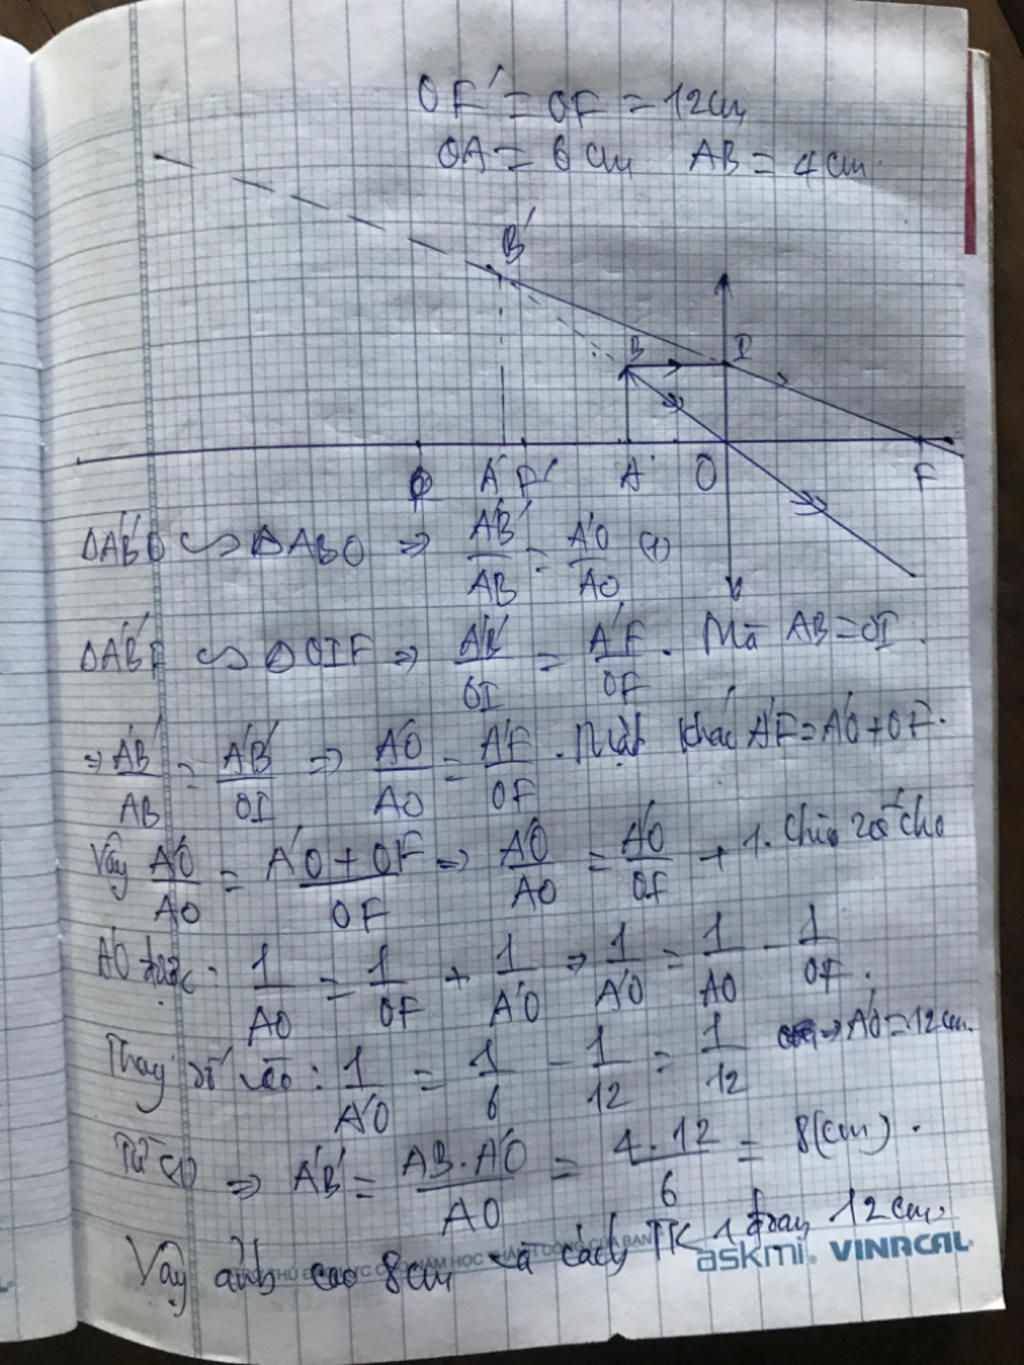 OF' = OF = 12cm
OA = 6 cm AB = 4 cm.
B'
B I
A' F' A O F
ΔA'B'O ∽ ΔABO ⇒ A'B'/AB = A'O/AO (1)
ΔA'B'F ∽ ΔOIF ⇒ A'B'/OI = A'F/OF. Mà AB = OI.
⇒ A'B'/AB = A'B'/OI ⇒ A'O/AO = A'F/OF. Mặt khác A'F = A'O + OF.
Vậy A'O/AO = A'O + OF/OF ⇒ A'O/AO = A'O/OF + 1. Chia 2 vế cho
A'O được: 1/AO = 1/OF + 1/A'O ⇒ 1/A'O = 1/AO - 1/OF.
Thay số vào: 1/A'O = 1/6 - 1/12 = 1/12 ⇒ A'O = 12cm.
Từ (1) ⇒ A'B' = AB.A'O/AO = 4.12/6 = 8(cm).
Vậy ảnh cao 8cm và cách TK 1 đoạn 12cm.
askmi. VINACAL